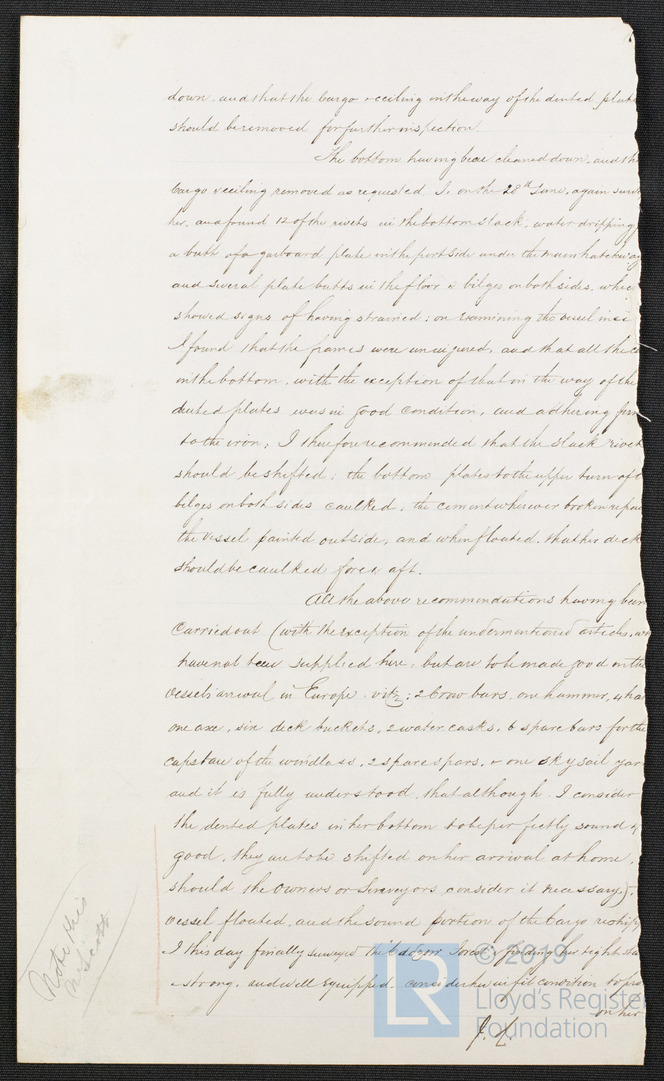 down, and that the Cargo & ceiling in the way of the dented plate
should be removed for further inspection.
The bottom having been cleaned down, and the
Cargo & ceiling removed as requested I, on the 28th June, again surv
her, and found 12 of the rivets in the bottom slack, water dripping
a butt of a garboard plate in the port side under the main hatchway
and several plate butts in the floor & bilges on both sides, whic
showed signs of having strained: on examining the vessel insi
I found that the frames were uninjured, and that all the ce
in the bottom, with the exception of that in the way of the
dented plates was in good condition, and adhering firm
to the iron; I therefore recommended that the slack rivet
should be shifted; the bottom plates to the upper turn of t
bilges on both sides caulked, the cement wherever broken repai
the vessel painted outside, and when floated, that her deck
should be caulked fore & aft.
All the above recommendations having been
Carried out (with the exception of the undermentioned articles, w
have not been supplied here, but are to be made good on the
vessels arrival in Europe. viz; 2 Crow bars, one hammer, 4 ha
one axe, six deck buckets, 2 water casks, 6 spare bars for the
capstan of the windlass, 2 spare spars, & one sky sail yar
and it is fully understood, that although I consider
the dented plates in her bottom to be perfectly sound &
good, they are to be shifted on her arrival at home,
should the Owners or Surveyors, consider it necessary),
vessel floated, and the sound portion of the Cargo reship
I this day finally surveyed the finding her tight sta
strong, and well equipped, consider her in fit condition to pro
on her
J. L.
Note this
Mr Scott
LR
© 2019
Lloyd's Registe
Foundation